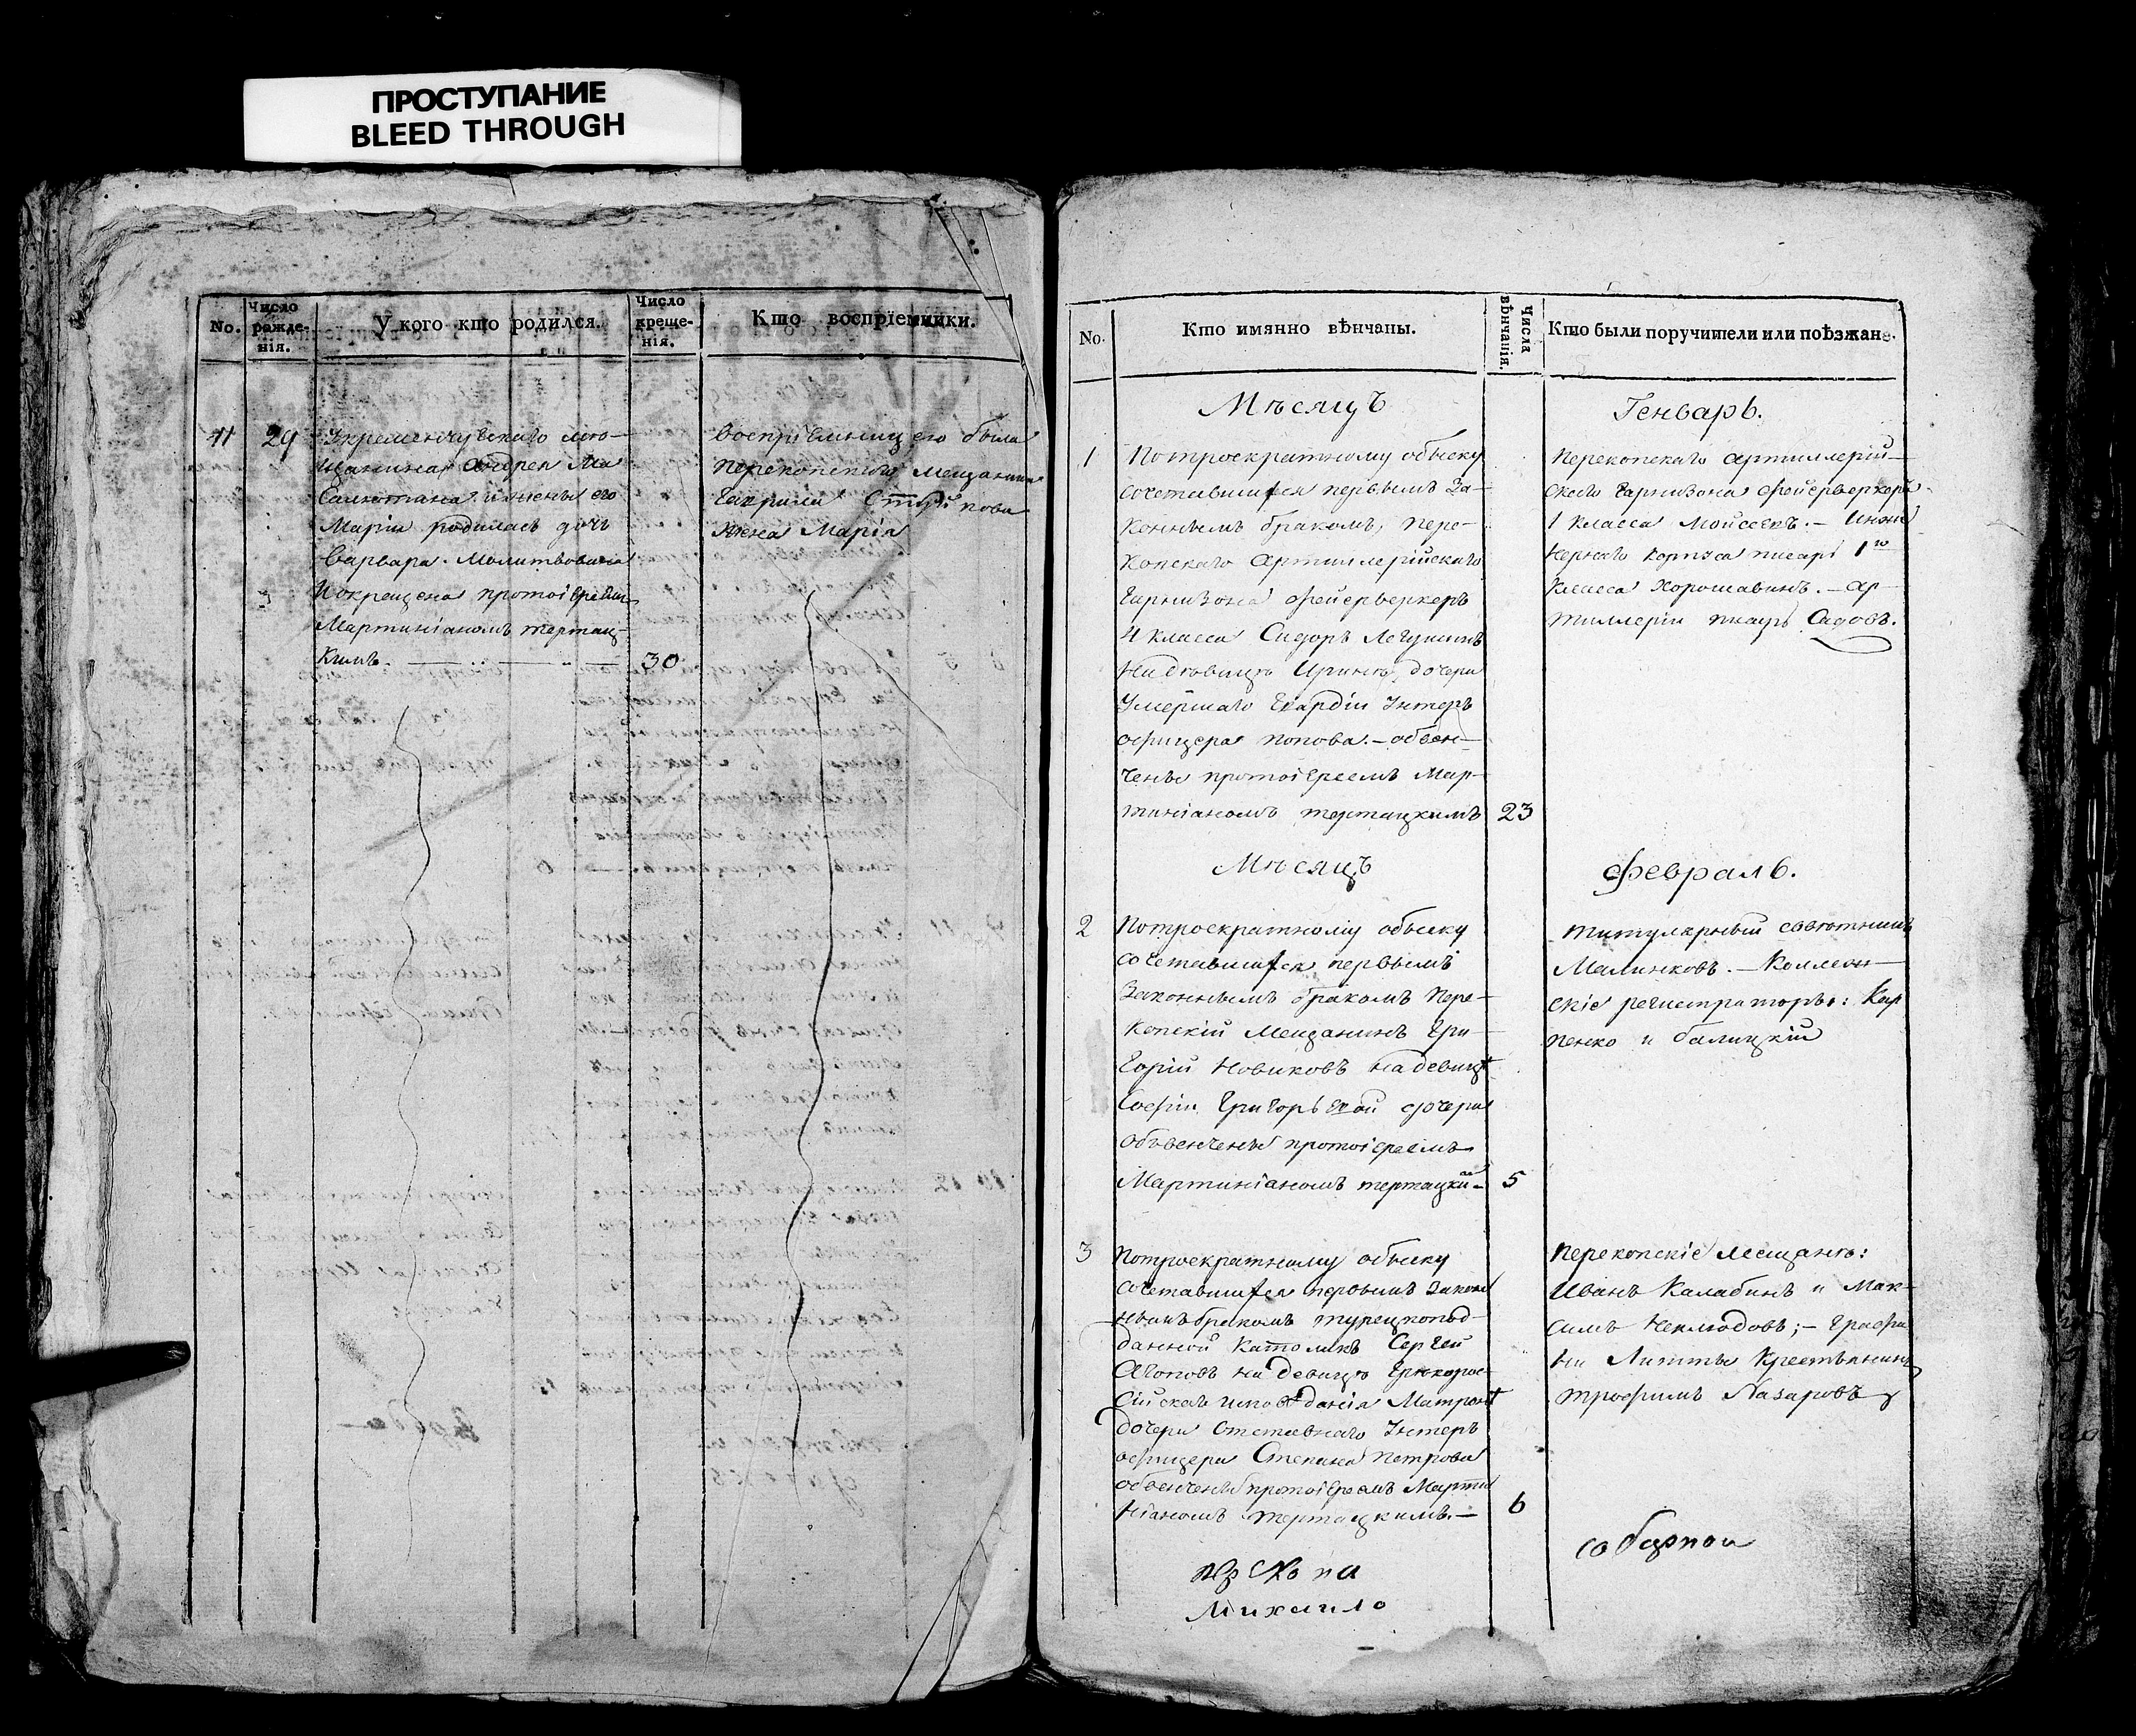 ПРОСТУПАНИЕ
BLEED THROUGH
No.
Число рожде- нія.
У кого кто родился.
Число креще- нія.
Кто воспріемники.
11
29
Укременчуцскаго мѣ-
щанина Андрея Ма
и жены его
Маріи родилась дочь
Варвара. Молитвована
И окрещена протоіереемъ
Мартиніаномъ Тертац-
кимъ.
30
Воспріемницею была
Перекопскаго мещанина
Гаврила
жена Марія
No.
Кто имянно вѣнчаны.
Числа вѣнчанія.
Кто были поручители или поѣзжане.
Мѣсяцъ
Генварь.
1
Потроекратному обыску
сочетавшійся первымъ за-
коннымъ бракомъ, пере-
копскаго Артиллерійскаго
гарнизона фейерверкеръ
4 класса Сидоръ
на дѣвицѣ Иринѣ, дочери
умершаго гвардіи унтеръ
офицера Попова. – обвен-
чены протоіереемъ Мар-
тиніаномъ тертацкимъ
23
Перекопскаго артиллерій-
скаго гарнизона фейерверкеръ
1 класса Моисеевъ. – Инже
нернаго корпуса писарь 1го
класса Хорошавинъ. – ар-
тиллеріи писарь Садовъ.
Мѣсяцъ
Февраль.
2
Потроекратному обыску
сочетавшійся первымъ
законнымъ бракомъ пере-
копскій мещанинъ Гри-
горій Новиковъ на девицѣ
Софіи Григорьевой дочери
обвенчены протоіереемъ
Мартиніаномъ тертацки-
5
титулярный совѣтникъ
Малинковъ. –
скіе регистраторы: Кар
пенко и Балицкій
3
Потроекратному обыску
сочетавшійся первымъ закон
нымъ бракомъ турецкопод-
данной католикъ Сергей
Агоповъ на девицѣ грекорос-
сійскаго исповѣданія Матронѣ
дочери отставнаго унтеръ
офицера Степана Петрова
обвенчены протоіереемъ Марти
ніаномъ тертацкимъ. –
6
Перекопскіе мещане:
Иванъ Калабинъ и Мак-
симъ Неклюдовъ; – графи
ни Литты крестьянинъ
трофимъ Лазаровъ
Михаило